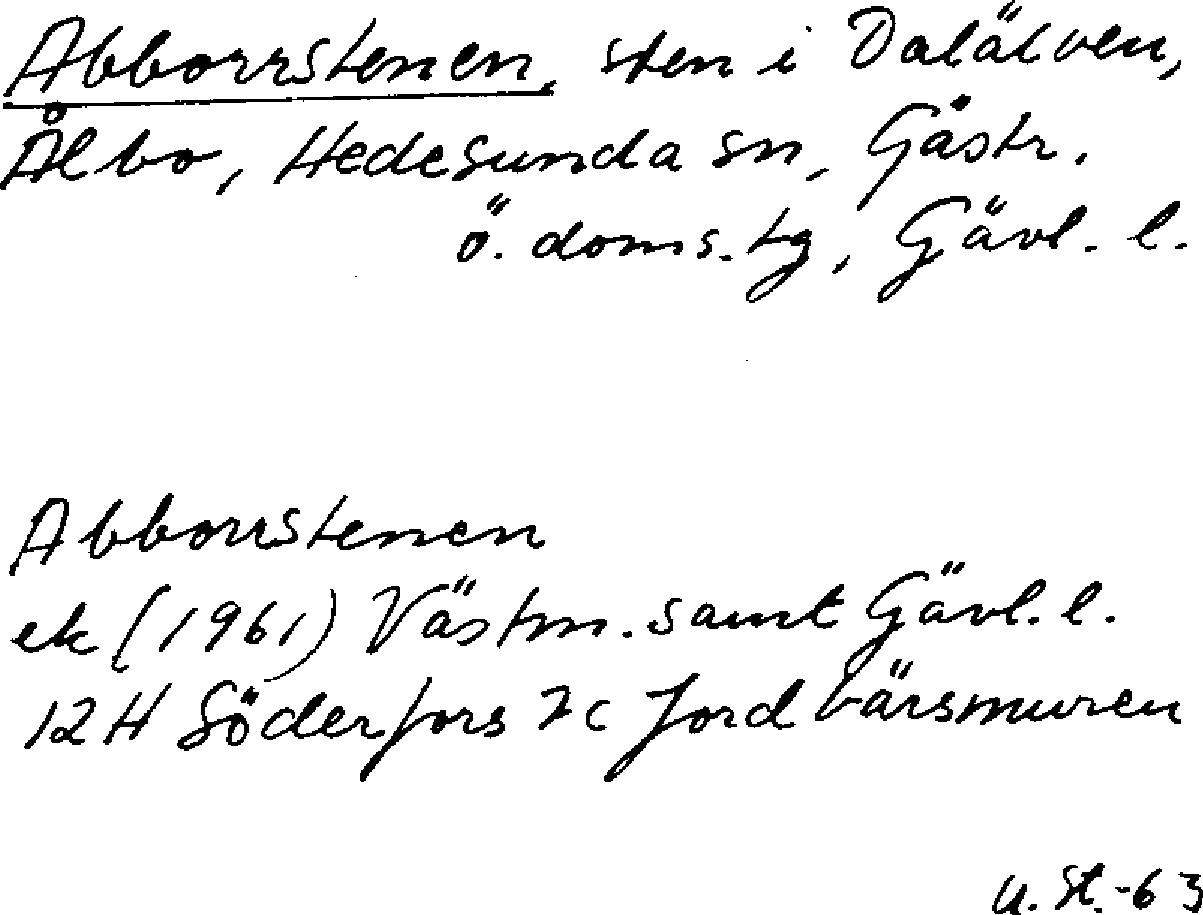 Abborrstenen, sten i Dalälven,
Ålbo, Hedesunda sn, Gästr.
ö. doms.tg, Gävl. l.
Abborrstenen
ek (1961) Västm. samt Gävl. l.
12H Söderfors 7c Jordbärsmuren
U. St.-63